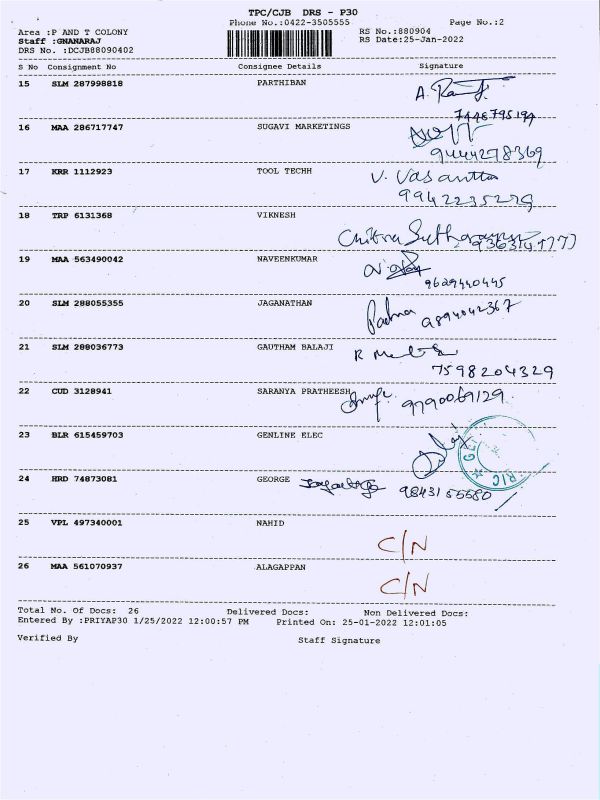 TPC/CJB DRS - P30
Phone No.:0422-3505555 Page No.:2
Area :P AND T COLONY RS No.:880904
Staff :GNANARAJ RS Date:25-Jan-2022
DRS No. :DCJB88090402
S No Consignment No Consignee Details Signature
15 SLM 287998818 PARTHIBAN
16 MAA 286717747 SUGAVI MARKETINGS
9444278369
17 KRR 1112923 TOOL TECHH V. Vasantha
9942235279
18 TRP 6131368 VIKNESH
Chitra
19 MAA 563490042 NAVEENKUMAR
9629440445
20 SLM 288055355 JAGANATHAN Padma 9894042367
21 SLM 288036773 GAUTHAM BALAJI R
7598204329
22 CUD 3128941 SARANYA PRATHEESH 9790069129
23 BLR 615459703 GENLINE ELEC
RIC ★ G
24 HRD 74873081 GEORGE 9843155580
25 VPL 497340001 NAHID
C/N
26 MAA 561070937 ALAGAPPAN
C/N
Total No. Of Docs: 26 Delivered Docs: Non Delivered Docs:
Entered By :PRIYAP30 1/25/2022 12:00:57 PM Printed On: 25-01-2022 12:01:05
Verified By Staff Signature